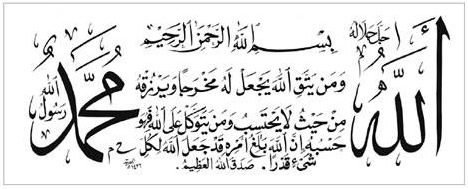 الله
جل جلاله
بسم الله الرحمن الرحيم
ومن يتق الله يجعل له مخرجا ويرزقه
من حيث لا يحتسب ومن يتوكل على الله فهو
حسبه إن الله بالغ أمره قد جعل الله لكل
شيء قدرا. صدق الله العظيم.
محمد
رسول الله